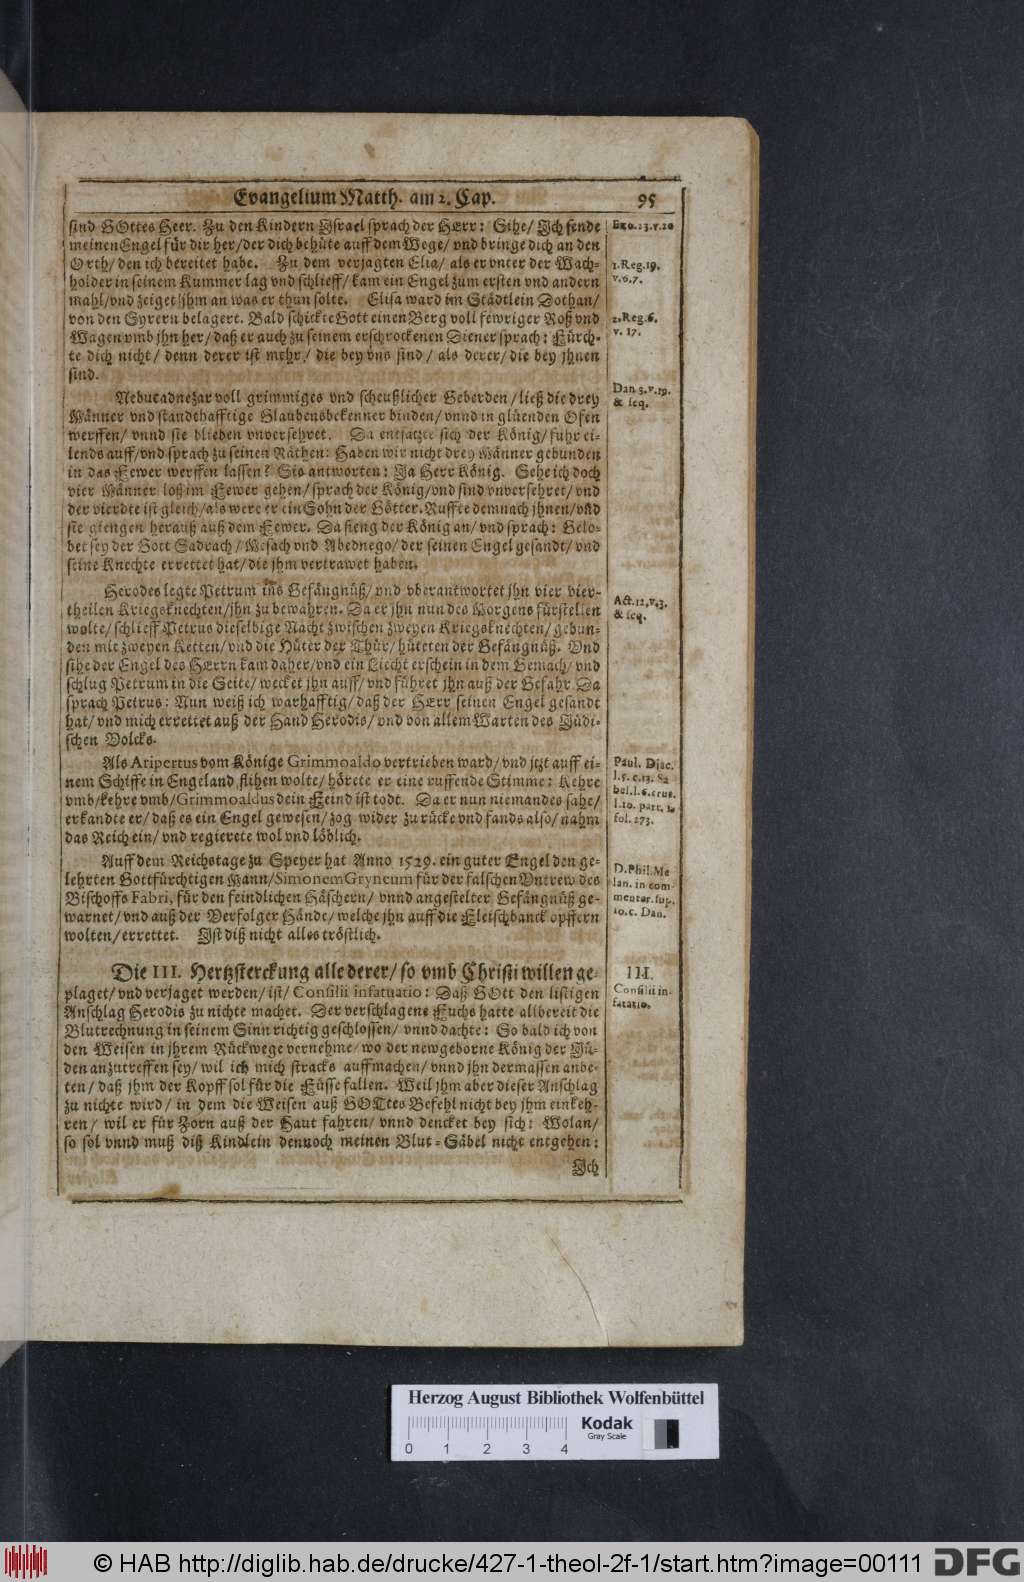 Evangelium Matth. am 2. Cap. 95
sind GOttes Heer. Zu den Kindern Israel sprach der HErr: Sihe/ Ich sende
meinen Engel für dir her/ der dich behüte auff dem Wege/ vnd bringe dich an den
Orth/ den ich bereitet habe. Zu dem verjagten Elia/ als er vnter der Wach-
holder in seinem Kummer lag vnd schlieff/ kam ein Engel zum ersten vnd andern
mahl/ vnd zeiget jhm an was er thun solte. Elisa ward im Städtlein Dothan/
von den Syrern belagert. Bald schickte Gott einen Berg voll fewriger Roß vnd
Wagen vmb jhn her/ daß er auch zu seinem erschrockenen Diener sprach: Fürch-
te dich nicht/ denn derer ist mehr/ die bey vns sind/ als derer/ die bey jhnen
sind.
Exo.23.v.20
1.Reg.19.
v.6.7.
2.Reg.6.
v. 17.
Nebucadnezar voll grimmiges vnd scheußlicher Geberden/ ließ die drey
Männer vnd standthafftige Glaubensbekenner binden/ vnnd in glüenden Ofen
werffen/ vnnd sie blieben vnversehret. Da entsatzte sich der König/ fuhr ei-
lends auff/ vnd sprach zu seinen Räthen: Haben wir nicht drey Männer gebunden
in das Fewer werffen lassen? Sie antworten: Ja Herr König. Sehe ich doch
vier Männer loß im Fewer gehen/ sprach der König/ vnd sind vnversehret/ vnd
der vierdte ist gleich/ als were er ein Sohn der Götter. Ruffte demnach jhnen/ vnd
sie giengen herauß auß dem Fewer. Da fieng der König an/ vnd sprach: Gelo-
bet sey der Gott Sadrach/ Mesach vnd Abednego/ der seinen Engel gesandt/ vnd
seine Knechte errettet hat/ die jhm vertrawet haben.
Dan.3.v.19.
& seq.
Herodes legte Petrum ins Gefängnüß/ vnd vberantwortet jhn vier vier-
theilen Kriegsknechten/ jhn zu bewahren. Da er jhn nun des Morgens fürstellen
wolte/ schlieff Petrus dieselbige Nacht zwischen zweyen Kriegsknechten/ gebun-
den mit zweyen Ketten/ vnd die Hüter der Thür/ hüteten der Gefängnüß. Vnd
sihe der Engel des HErrn kam daher/ vnd ein Liecht erschein in dem Gemach/ vnd
schlug Petrum in die Seite/ wecket jhn auff/ vnd führet jhn auß der Gefahr. Da
sprach Petrus: Nun weiß ich warhafftig/ daß der HErr seinen Engel gesandt
hat/ vnd mich errettet auß der Hand Herodis/ vnd von allem Warten des Jüdi-
schen Volcks.
Act.12,v.3.
& seq.
Als Aripertus vom Könige Grimmoaldo vertrieben ward/ vnd jtzt auff ei-
nem Schiffe in Engeland flihen wolte/ hörete er eine ruffende Stimme: Kehre
vmb/ kehre vmb/ Grimmoaldus dein Feind ist todt. Da er nun niemandes sahe/
erkandte er/ daß es ein Engel gewesen/ zog wider zu rücke vnd fands also/ nahm
das Reich ein/ vnd regierete wol vnd löblich.
Paul. Diac.
l.5. c.13. Sa
bel.l.6.
l.10. part.
fol. 273.
Auff dem Reichstage zu Speyer hat Anno 1529. ein guter Engel den ge-
lehrten Gottfürchtigen Mann/ Simonem Gryneum für der falschen Vntrew des
Bischoffs Fabri, für den feindlichen Häschern/ vnnd angestelter Gefängnüß ge-
warnet/ vnd auß der Verfolger Hände/ welche jhn auff die Fleischbanck opffern
wolten/ errettet. Ist diß nicht alles tröstlich.
D.Phil.Me
lan. in com-
mentar. sup.
10.c. Dan.
Die III. Hertzsterckung alle derer/ so vmb Christi willen ge-
plaget/ vnd verjaget werden/ ist/ Consilii infatuatio: Daß GOtt den listigen
Anschlag Herodis zu nichte machet. Der verschlagene Fuchs hatte allbereit die
Blutrechnung in seinem Sinn richtig geschlossen/ vnnd dachte: So bald ich von
den Weisen in jhrem Rückwege vernehme/ wo der newgeborne König der Jü-
den anzutreffen sey/ wil ich mich stracks auffmachen/ vnnd jhn dermassen anbe-
ten/ daß jhm der Kopff sol für die Füsse fallen. Weil jhm aber dieser Anschlag
zu nichte wird/ in dem die Weisen auß GOTtes Befehl nicht bey jhm einkeh-
ren/ wil er für Zorn auß der Haut fahren/ vnnd dencket bey sich: Wolan/
so sol vnnd muß diß Kindlein dennoch meinen Blut-Säbel nicht entgehen:
III.
Consilii in-
fatatio.
Ich
Herzog August Bibliothek Wolfenbüttel
Kodak
Gray Scale
0 1 2 3 4
© HAB http://diglib.hab.de/drucke/427-1-theol-2f-1/start.htm?image=00111
DFG